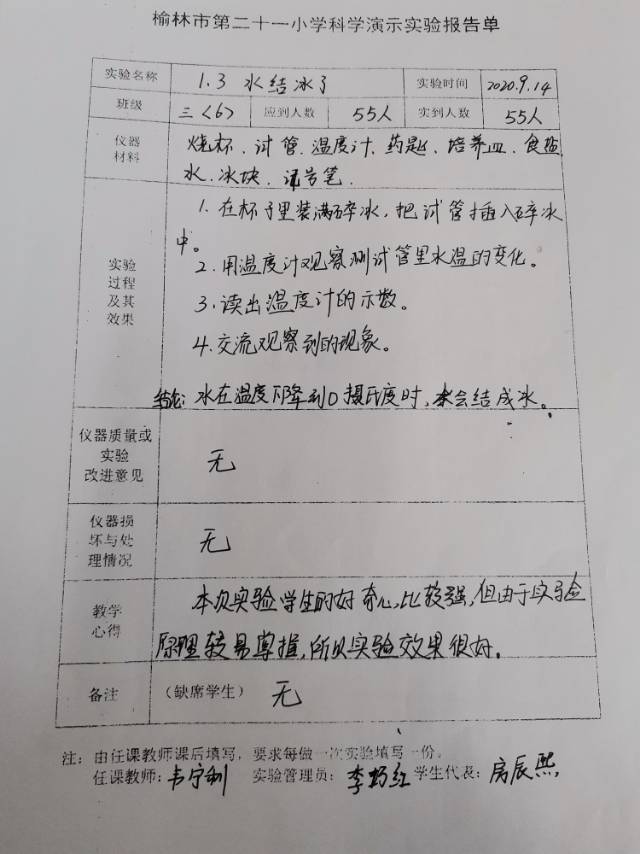 榆林市第二十一小学科学演示实验报告单
实验名称 1.3 水结冰了 实验时间 2020.9.14
班级 三〈6〉 应到人数 55人 实到人数 55人
仪器
材料
烧杯、试管、温度计、药匙、培养皿、食盐
水、冰块、记号笔.
实验
过程
及其
效果
1. 在杯子里装满碎冰,把试管插入碎冰
中。
2. 用温度计观察测试管里水温的变化。
3. 读出温度计的示数。
4. 交流观察到的现象。
结论: 水在温度下降到0摄氏度时,会结成冰。
仪器质量或
实验
改进意见
无
仪器损
坏与处
理情况
无
教学
心得
本次实验学生的好奇心,比较强,但由于实验
原理较易掌握,所以实验效果很好。
备注 (缺席学生) 无
注:由任课教师课后填写,要求每做一次实验填写一份。
任课教师: 实验管理员: 学生代表: